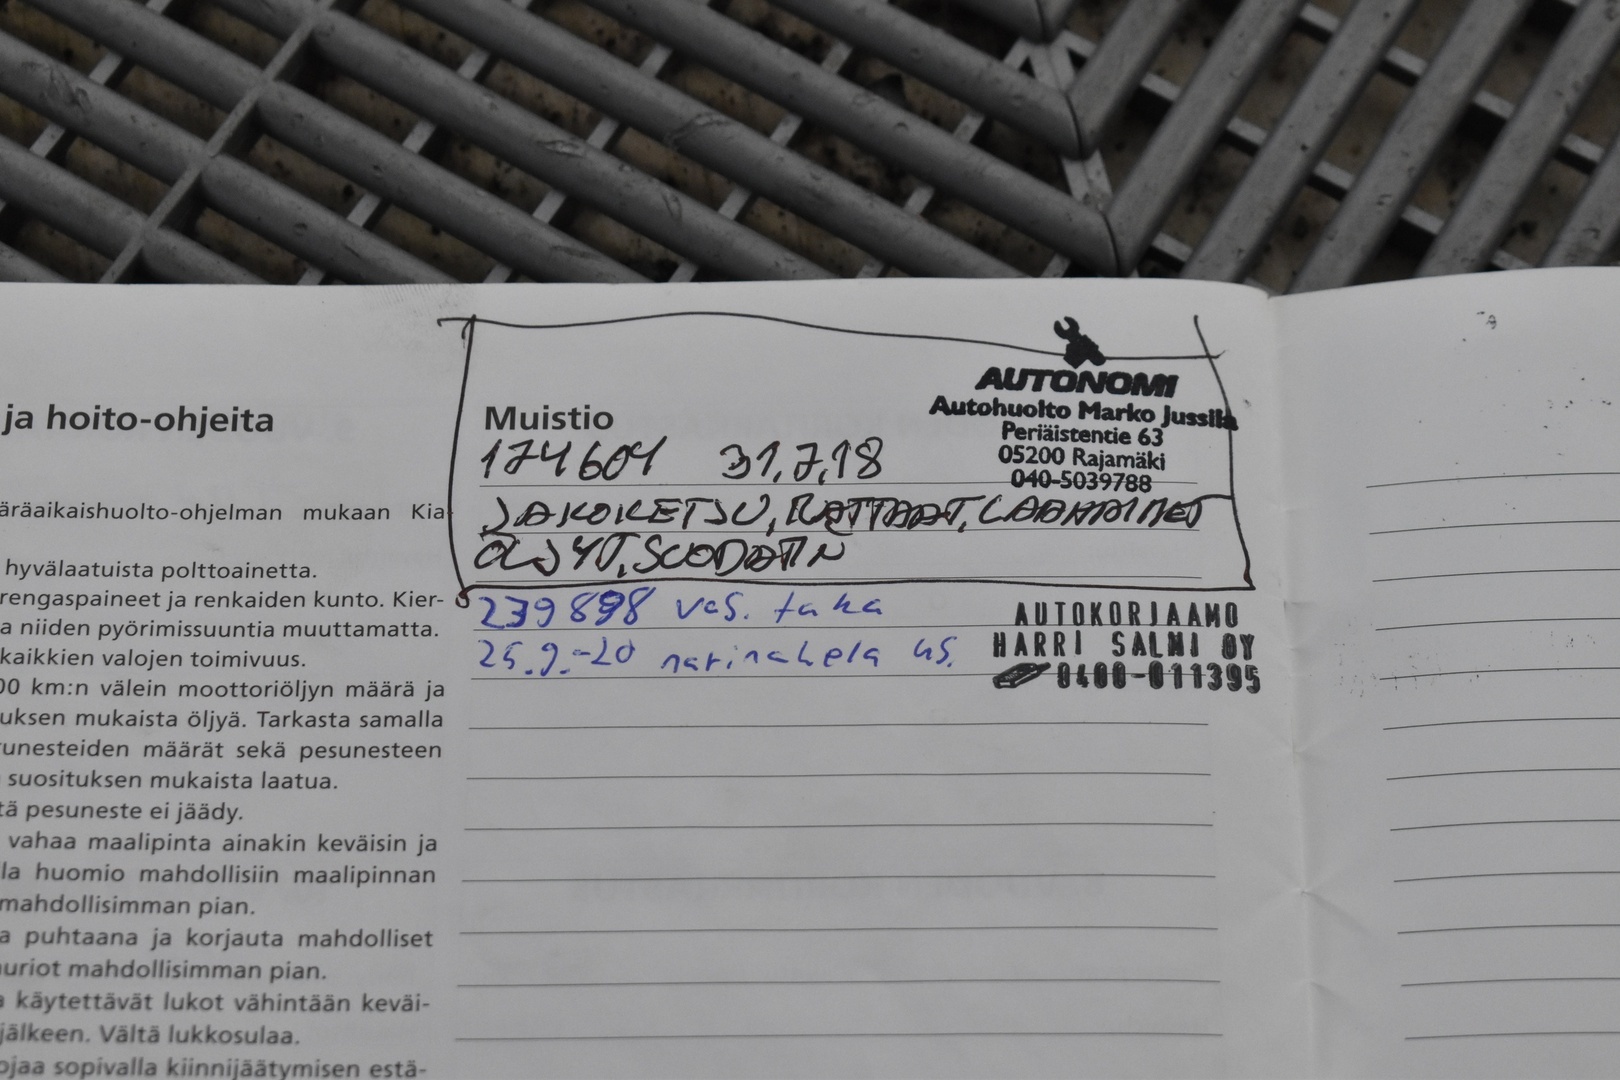 ja hoito-ohjeita
äräaikaishuolto-ohjelman mukaan Kia-
hyvälaatuista polttoainetta.
rengaspaineet ja renkaiden kunto. Kier-
a niiden pyörimissuuntia muuttamatta.
kaikkien valojen toimivuus.
00 km:n välein moottoriöljyn määrä ja
uksen mukaista öljyä. Tarkasta samalla
runesteiden määrät sekä pesunesteen
suosituksen mukaista laatua.
tä pesuneste ei jäädy.
vahaa maalipinta ainakin keväisin ja
lla huomio mahdollisiin maalipinnan
mahdollisimman pian.
a puhtaana ja korjauta mahdolliset
auriot mahdollisimman pian.
a käytettävät lukot vähintään keväi-
jälkeen. Vältä lukkosulaa.
ojaa sopivalla kiinnijäätymisen estä-
Muistio
174604 31.7.18
JAKOKETJU, RATTAAT, LAAHAIMET
ÖLJYT, SUODATIN
AUTONOMI
Autohuolto Marko Jussila
Periäistentie 63
05200 Rajamäki
040-5039788
239898 vas. taka
25.9.-20 navinahela us.
AUTOKORJAAMO
HARRI SALMI OY
0400-011395